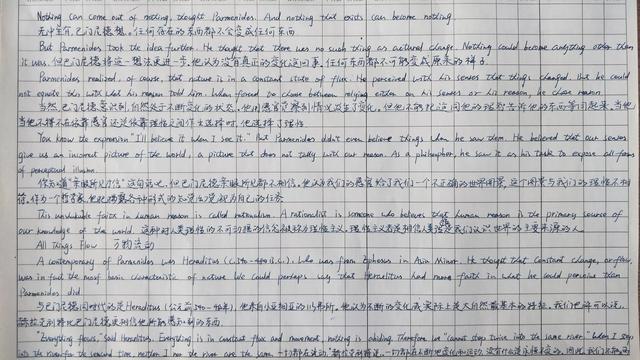 Nothing can come out of nothing, thought Parmenides. And nothing that exists can become nothing
无中生有,巴门尼德想。任何存在的东西都不会变成任何东西
But Parmenides took the idea further. He thought that there was no such thing as actural change. Nothing could become anything other than
it was. 但巴门尼德将这一想法更进一步,他认为没有真正的变化这回事,任何东西都不可能变成原来的样子.
Parmenides realized, of course, that nature is in a constant state of flux. He perceived with his senses that things changed. But he could
not equate this with what his reason told him. When forced to choose between relying either on his senses or his reason, he chose reason
当然,巴门尼德意识到,自然处于不断变化的状态,他用感官觉察到情况发生了变化。但他不能把这同他的理智告诉他的东西等同起来。当
当他不得不在依靠感官还是依靠理性之间作出选择时,他选择了理性
You know the expression "I'll believe it when I see it." But Parmenides didn't even believe things when he saw them. He believed that our senses
give us an incorrect picture of the world, a picture that does not tally with our reason. As a philosopher, he saw it as his task to expose all forms
of perceptual illusion.
你知道"亲眼所见才信"这句话吧,但巴门尼德亲眼所见都不相信。他认为我们的感官给了我们一个不正确的世界图景,这个图景与我们的理性不相
符。作为一个哲学家,他把揭露各种形式的知觉错觉视为自己的任务
This unshakable faith in human reason is called rationalism. A rationalist is someone who believes that human reason is the primary source of
our knowledge of the world. 这种对人类理性的不可动摇的信念被称为理性主义。理性主义者是相信人类理性是我们认识世界的主要来源的人。
All things Flow 万物流动
A contemporary of Parmenides was Heraditus (c.540-480 B.C.), who was from Ephesus in Asia Minor. He thought that constant change, or flow,
was in fact the most basic characteristic of nature. We could perhaps say that Heraclitus had more faith in what he could perceive than
Parmenides did.
与巴门尼德同时代的是Heraditus (公元前540-480年), 他来自小亚细亚的以弗所。他认为不断的变化或实际上是大自然最基本的特征。我们也许可以说,
赫拉克利特比巴门尼德更相信他所能感知到的东西.
"Everything flows," said Heraclitus. Everything is in constant flux and movement, nothing is abiding. Therefore we "cannot step twice into the same river." When I step
into the river for the second time, neither I nor the river are the same.